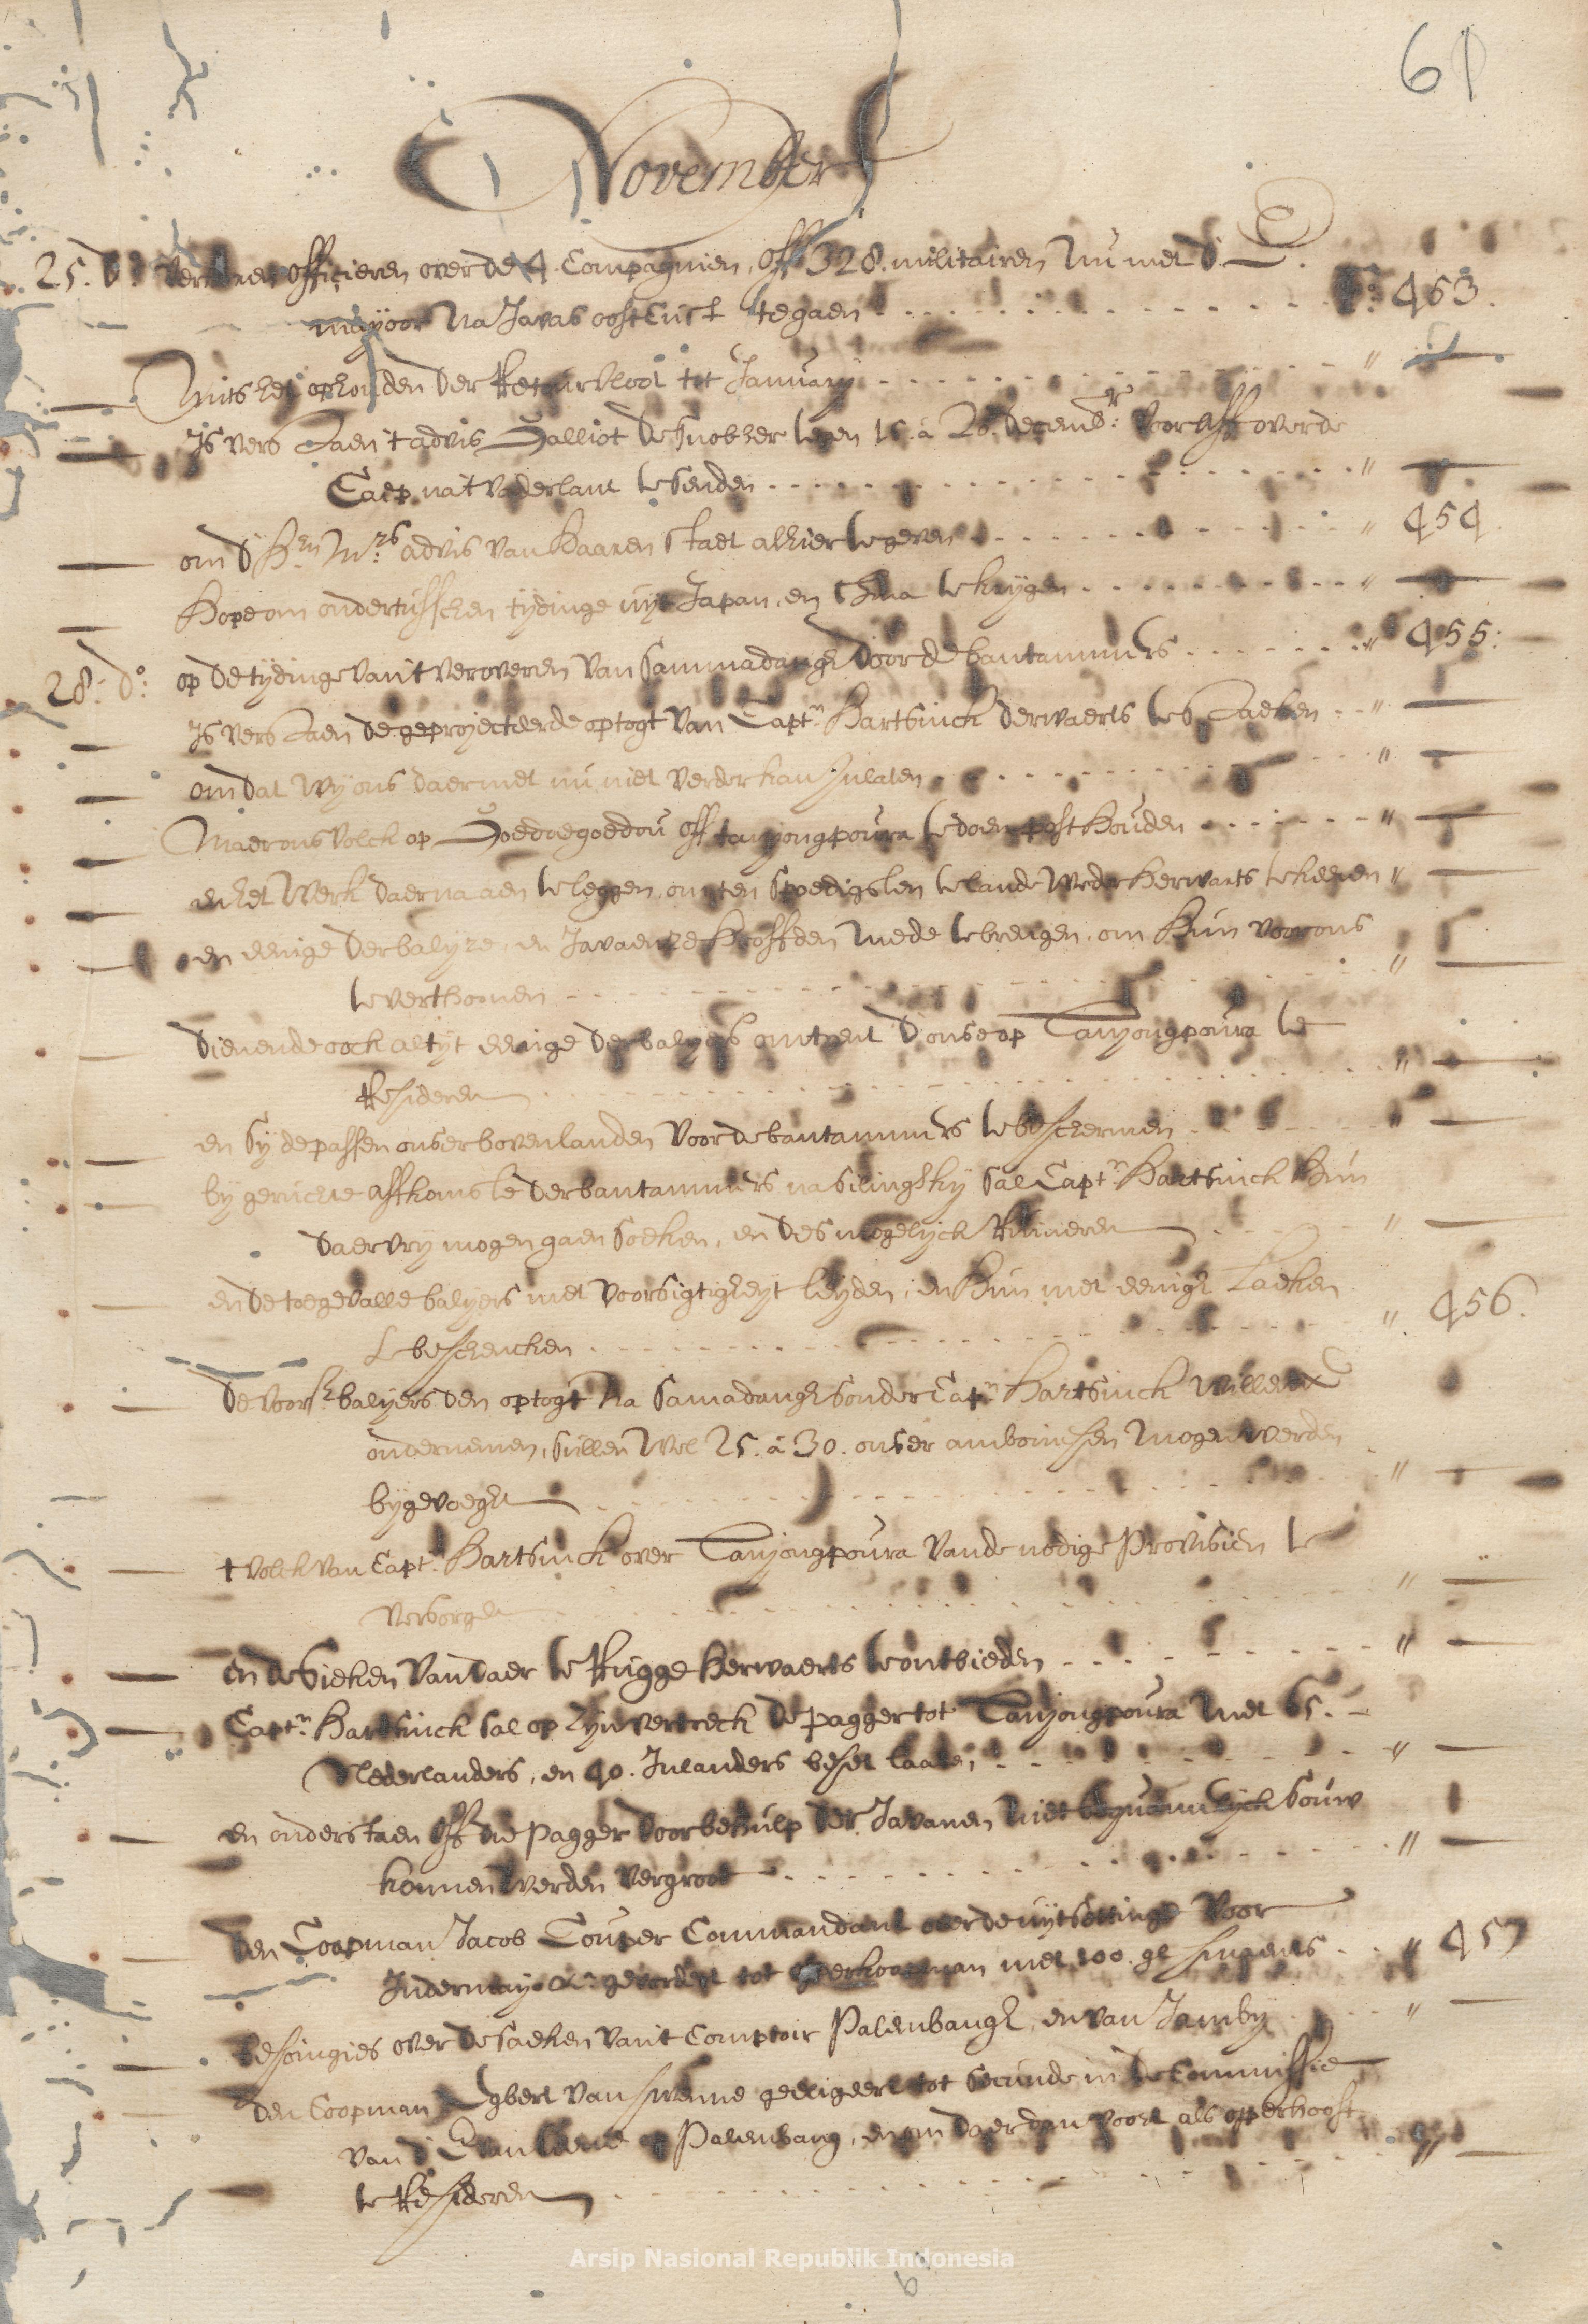 61
November
25. do verdeelt officieren over de 4. Compagnien, off 328. militairen nu met d'E.
majoor na Javas oost Cust te gaen . . . fo: 453.
Mits het ophouden der Retourvloot tot January . . . " —
Is verstaen t advis Galliot de Snobber tegen 15. a 20. decembr: vooraff over de
Caep na 't vaderlant te senden . . . " —
om d' Hrn Mrs advis van haaren staet alhier te geven . . . " 454.
Hope om ondertusschen tydinge uyt Japan, en China te krygen . . . " —
28. do: op de tydinge van 't veroveren van Sammadangh door de bantammers . . . " 455:
Is verstaen de geprojecteerde optogt van Captn Hartsinck derwaerts te staeken . . " —
om dat wy ons daermet nu niet verder kan inlaten . . . " —
Maer ons volck op Goedoegoedou off tanjongpoura te doen post houden . . . " —
en het werk daer na aen te leggen, om ten spoedigsten te lande weder herwaerts te keeren " —
en eenige der balyse, en Javaense hoofden mede te brengen, om hun voor ons
te verthoonen . . . " —
dienende oock altyt eenige der balyers omtrent d'onse op Tanjongpoura te
Resideren . . . " —
en sy de passen onser bovenlanden voor de bantammers te beschermen . . . " —
by geruchte affkomste der bantammers na Silingsky sal Captn Hartsinck hun
daer vry mogen gaen soeken, en des mogelyck Ruineren . . . " —
en de toegevalle balyers met voorsigtigheyt leyden, en hun met eenige Laeken
te beschencken . . . " 456.
de voorsz balyers den optogt na Samadangh sonder Captn Hartsinck willende
ondernemen, sullen wel 25. a 30. onser amboinesen mogen werden
bygevoeght . . . " —
t volck van Captn Hartsinck over Tanjongpoura van de nodige Provisien te
versorgen . . . " —
en de Sieken van daer te Rugge herwaerts te ontbieden . . . " —
Captn Hartsinck sal op zyn vertreck de pagger tot Tanjongpoura met 65. —
Nederlanders, en 40. Inlanders beset laten, . . . " —
en onderstaen off die pagger door behulp der Javanen niet bequamelyck souw
konnen werden vergroot . . . " —
den Coopman Jacob Couper Commandant over de uytsettinge voor
Indermayoe gevordert tot Opperkoopman met 100. gl smaents . . " 457
besoingies over de saeken van 't Comptoir Palembangh, en van Jamby . . . " —
den Coopman Egbert van geeligeert tot secunde in de Commissie
van d' Palembang, en om daer dan voort als opperhooft
te Resideren . . . " —
Arsip Nasional Republik Indonesia